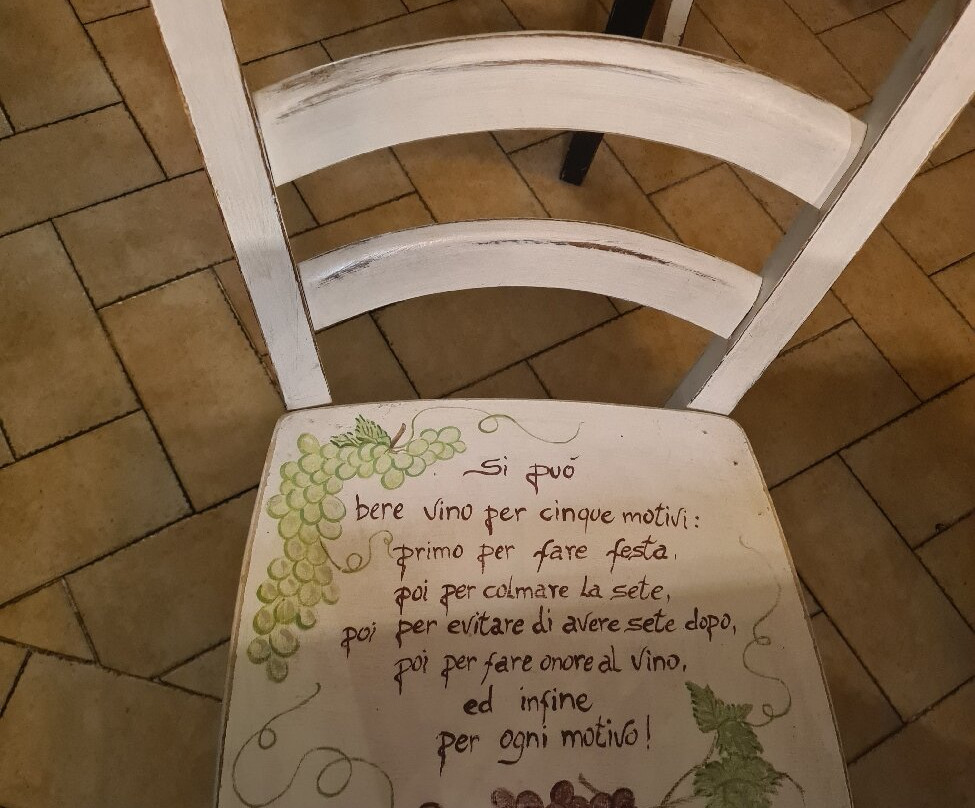 Si può
bere vino per cinque motivi:
primo per fare festa,
poi per colmare la sete,
poi per evitare di avere sete dopo,
poi per fare onore al vino,
ed infine
per ogni motivo!